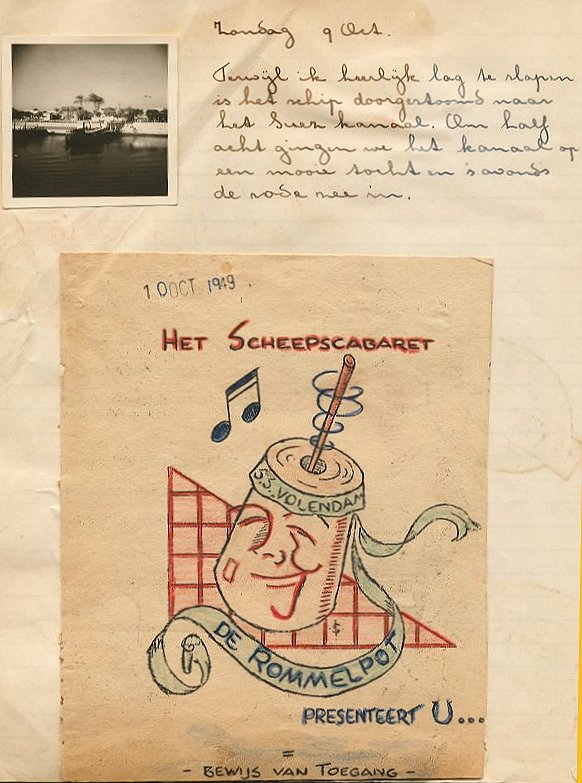 Zondag 9 Oct.
Terwijl ik heerlijk lag te slapen
is het schip doorgestoomd naar
het Suez kanaal. Om half
acht gingen we het kanaal op
een mooie tocht en 's avonds
de rode zee in.
10 OCT 1949.
HET SCHEEPSCABARET
S.S. VOLENDAM
$
DE ROMMELPOT
PRESENTEERT U...
=
- BEWIJS VAN TOEGANG -